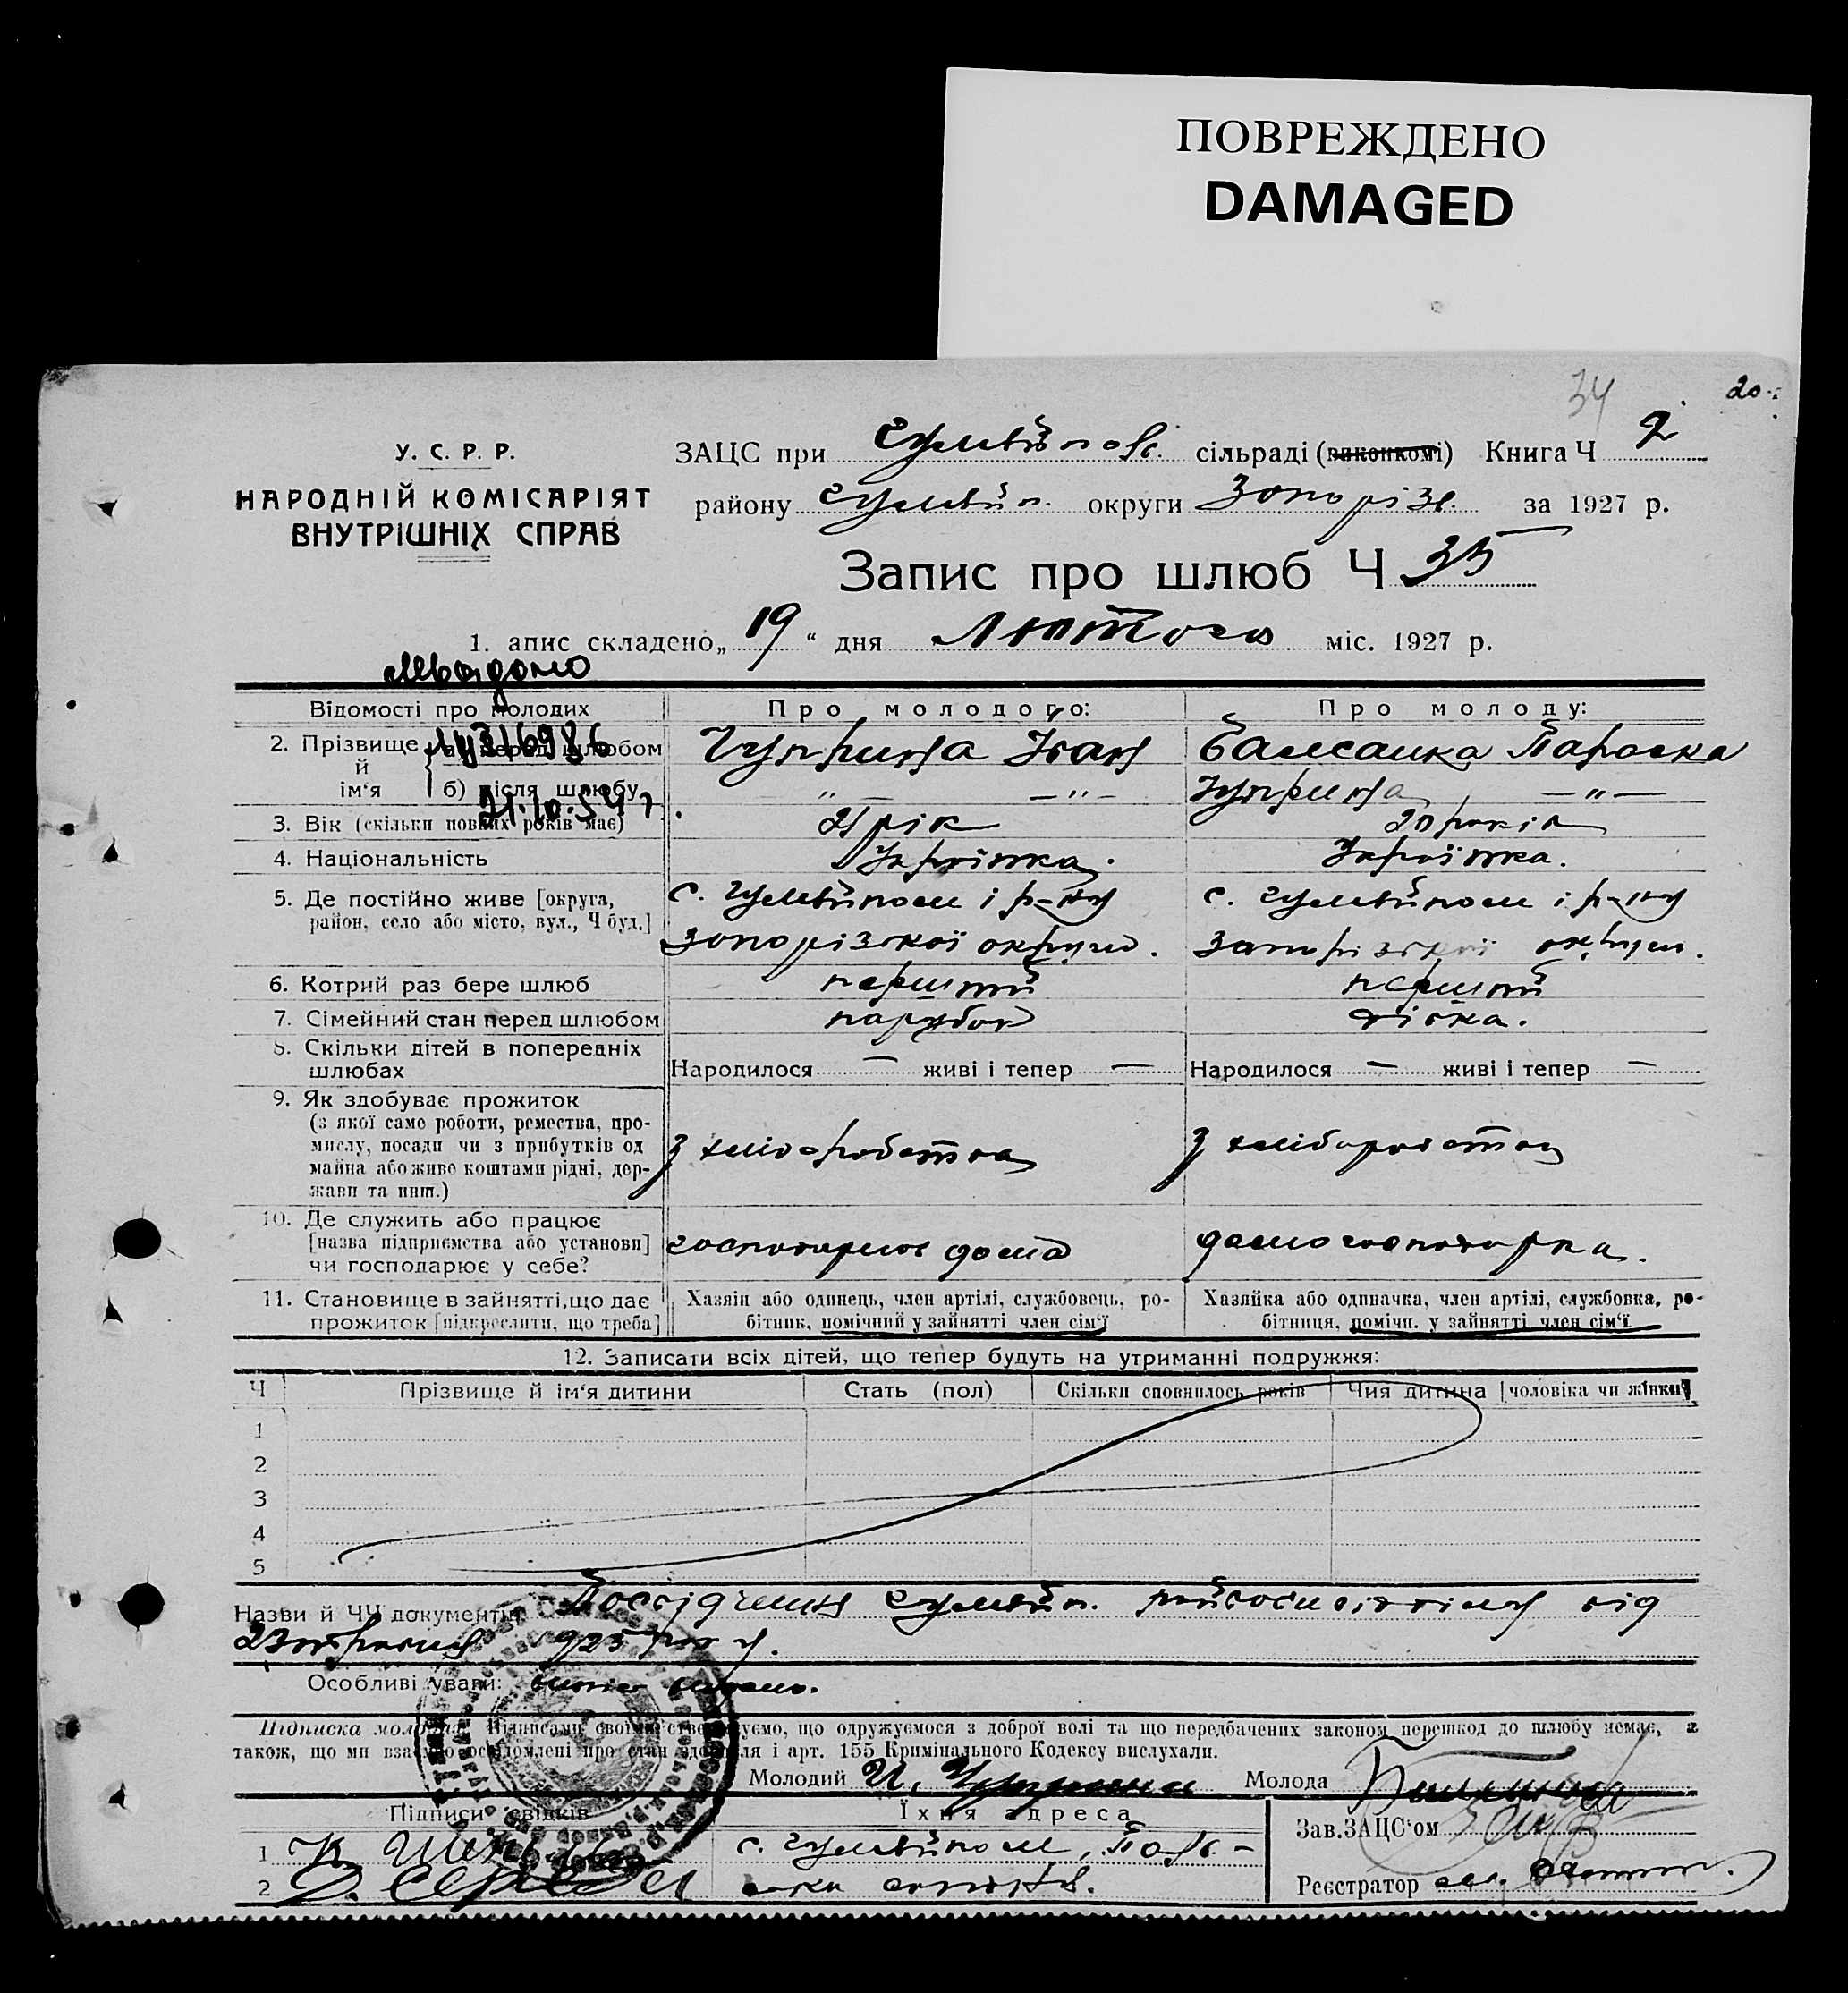 ПОВРЕЖДЕНО
DAMAGED
34
20
У. С. Р. Р.
НАРОДНІЙ КОМІСАРІЯТ
ВНУТРІШНІХ СПРАВ
ЗАЦС при Гуляйпольс. сільраді (виконкомі) Книга Ч 2
району Гуляйп. округи Запоріз. за 1927 р.
Запис про шлюб Ч 35
1. апис складено „ 19 “ дня Лютого міс. 1927 р.
Відомості про молодих
Про молодого:
Про молоду:
2. Прізвище й ім‘я
а) перед шлюбом
Чуприна Іван
Параска
б) після шлюбу
— " — — " —
Чуприна — " —
21.10.54 г.
3. Вік (скільки повних років має)
21 рік
20 років
4. Національність
Українка.
Українка.
5. Де постійно живе [округа, район, село або місто, вул., Ч буд.]
с. Гуляйполе і р-ну
Запорізької округи.
с. Гуляйполе і р-ну
Запорізької округи.
6. Котрий раз бере шлюб
перший
перший
7. Сімейний стан перед шлюбом
парубок
дівка.
8. Скільки дітей в попередніх шлюбах
Народилося — живі і тепер —
Народилося — живі і тепер —
9. Як здобуває прожиток
(з якої само роботи, ремества, про-
мислу, посади чи з прибутків од
майна або живе коштами рідні, дер-
жави та инш.)
З хліборобства
З хліборобства
10. Де служить або працює
[назва підприємства або установи]
чи господарює у себе?
господарює дома
домогосподарка.
11. Становище в зайнятті, що дає
прожиток [підкреслити, що треба]
Хазяїн або одинець, член артілі, службовець, ро-
бітник, помічний у зайнятті член сім‘ї
Хазяйка або одиначка, член артілі, службовка, ро-
бітниця, помічн. у зайнятті член сім‘ї
12. Записати всіх дітей, що тепер будуть на утриманні подружжя:
Ч
Прізвище й ім‘я дитини
Стать (пол)
Скільки сповнилось років
Чия дитина [чоловіка чи жінки]
1
2
3
4
5
Назви й ЧЧ документів Посвідчення Гуляйп. від
925 року.
Особливі уваги: видано.
Підписка молодих. Підписами своїми стверджуємо, що одружуємося з доброї волі та що передбачених законом перешкод до шлюбу немає, а
також, що ми взаємно освідомлені про стан здоровля і арт. 155 Кримінального Кодексу вислухали.
Молодий И. Чуприна
Молода
Підписи свідків
Їхня адреса
Зав. ЗАЦС‘ом
1 К.
с. Гуляйполе,
2
Реєстратор